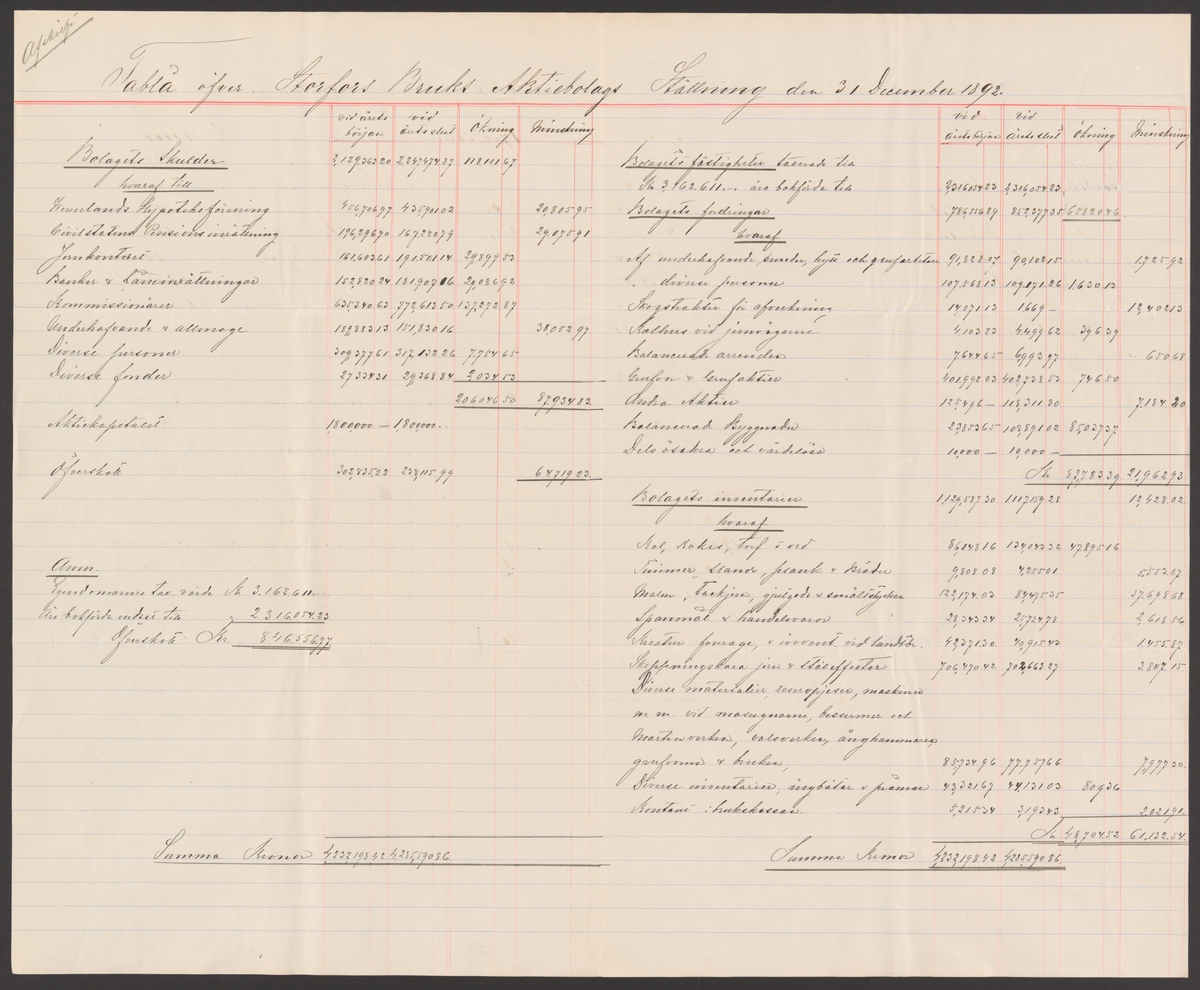 Afskrift
Tablå öfver Storfors Bruks Aktiebolags Ställning den 31 December 1892.
vid årets början vid årets slut ökning Minskning
Bolagets Skulder 2,129,363 20 2,247,474 87 118,111 67
hvaraf till
Wermlands Hypoteksförening 456,706 97 435,901 02 20,805.95
Civilstatens Pensionsinrättning 196,296 70 167,220 79 29,075 91
Jernkontoret 161,603 61 191,501 14 29,897 53
Banker & Låneinrättningar 152,820 24 181,907 16 29,086 92
Kommissionärer 635,340 63 772,613 50 137,272 87
Underhafvande & allmoge 189,883 13 151,830 16 38,052 97
Diverse personer 309,377 61 317,132 26 7,754 65
Diverse fonder 27,334 31 29,368 84 2,034 53
206,046 50 87,934 83
Aktiekapitalet 1,800,000 — 1,800,000.—
Öfverskott 302,435 22 238,115 99 64,719 23
Anm.
Egendomarnes tax. värde Kr 3.162.611.—
Äro bokförda endast till „ 2.316.054.23
Öfverskott Kr 846.556,77
Summa Kronor 4,232,198 42 4,285,590 86
vid årets början vid årets slut ökning Minskning
Bolagets fastigheter taxerade till
Kr 3.162.611.— äro bokförda till 2,316,054 23 2,316,054 23
Bolagets fordringar 786,556 89 852,377 35 65,820 46
hvaraf
Af underhafvande smeder, hytt och grufarbetare 91,828 07 90,102 15 1,725 92
„ diverse personer 107,568 13 109,171.26 1,630 13
Skogstrakter för afverkning 14,071 13 1,669 — 12,402 13
Kolhus vid jernvägarne 4,103 23 4,499 62 396 39
Balancerade arrenden 7,644 65 6,993 97 650 68
Grufvor & Grufaktier 401,992 03 402,738 53 746 50
Andra Aktier 125,496 — 118,311.80 7,184.20
Balancerad Byggnader 23,853 65 108,891 02 85,037 37
Dels osäkra och värdelösa 10,000 — 10,000 —
Kr 87,783 39 21,962 93
Bolagets inventarier 1,129,587 30 1,117,159 28 12,428.02
hvaraf
Kol, Kokes, torf & ved 86,148 16 134,043 32 47,895 16
Timmer, stand, plank & Bräder 9,808.08 4,255 01 5,553 07
Malm, Tackjern, gjutgods & smältstycken 122,174 03 84,475 35 37,698 68
Spannmål & handelsvaror 28,343 34 25,724 78 2,618 56
Kreatur fourage, & invent. vid landtbr. 42,371.30 40,915.43 1,455.87
Skeppningsvara jern & stålseffecter 706,470 42 702,663 27 3.807 15
Diverse materialier, reservpjeser, maskiner
m. m. vid masugnarne, bessemer och
Martinverken, valsverken, ånghammaren,
grufvorna & bruken, 85,734 96 77,757 66 7,977 30
Diverse inventarier, ångbåtar & pråmar 43,321.67 44,131.03 809 36
Kontant i brukskassan 5,215 34 3,193 43 2,021 91
Kr 48,704 52 61,132.54
Summa Kronor 4,232,198 42 4,285,590 86